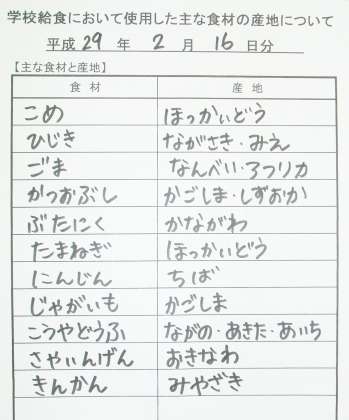 学校給食において使用した主な食材の産地について
平成 29 年 2 月 16 日分
【主な食材と産地】
食材 産地
こめ ほっかいどう
ひじき ながさき・みえ
ごま なんべい・アフリカ
かつおぶし かごしま・しずおか
ぶたにく かながわ
たまねぎ ほっかいどう
にんじん ちば
じゃがいも かごしま
こうやどうふ ながの・あきた・あいち
さやいんげん おきなわ
きんかん みやざき